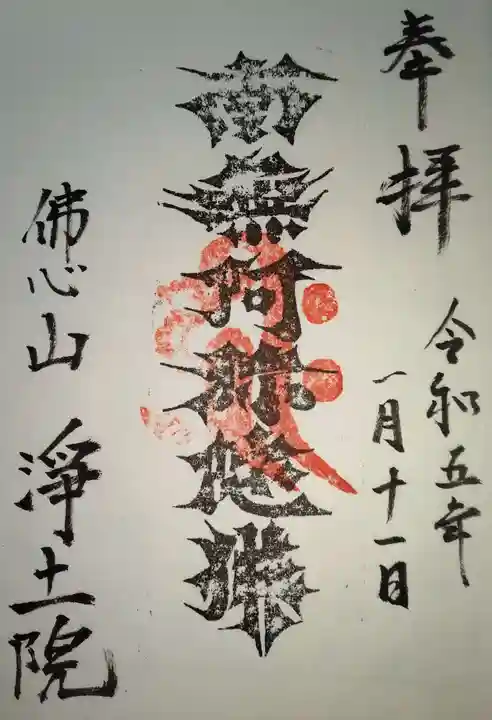 奉拝
令和五年
一月十一日
南無阿弥陀佛
佛心山 淨土院